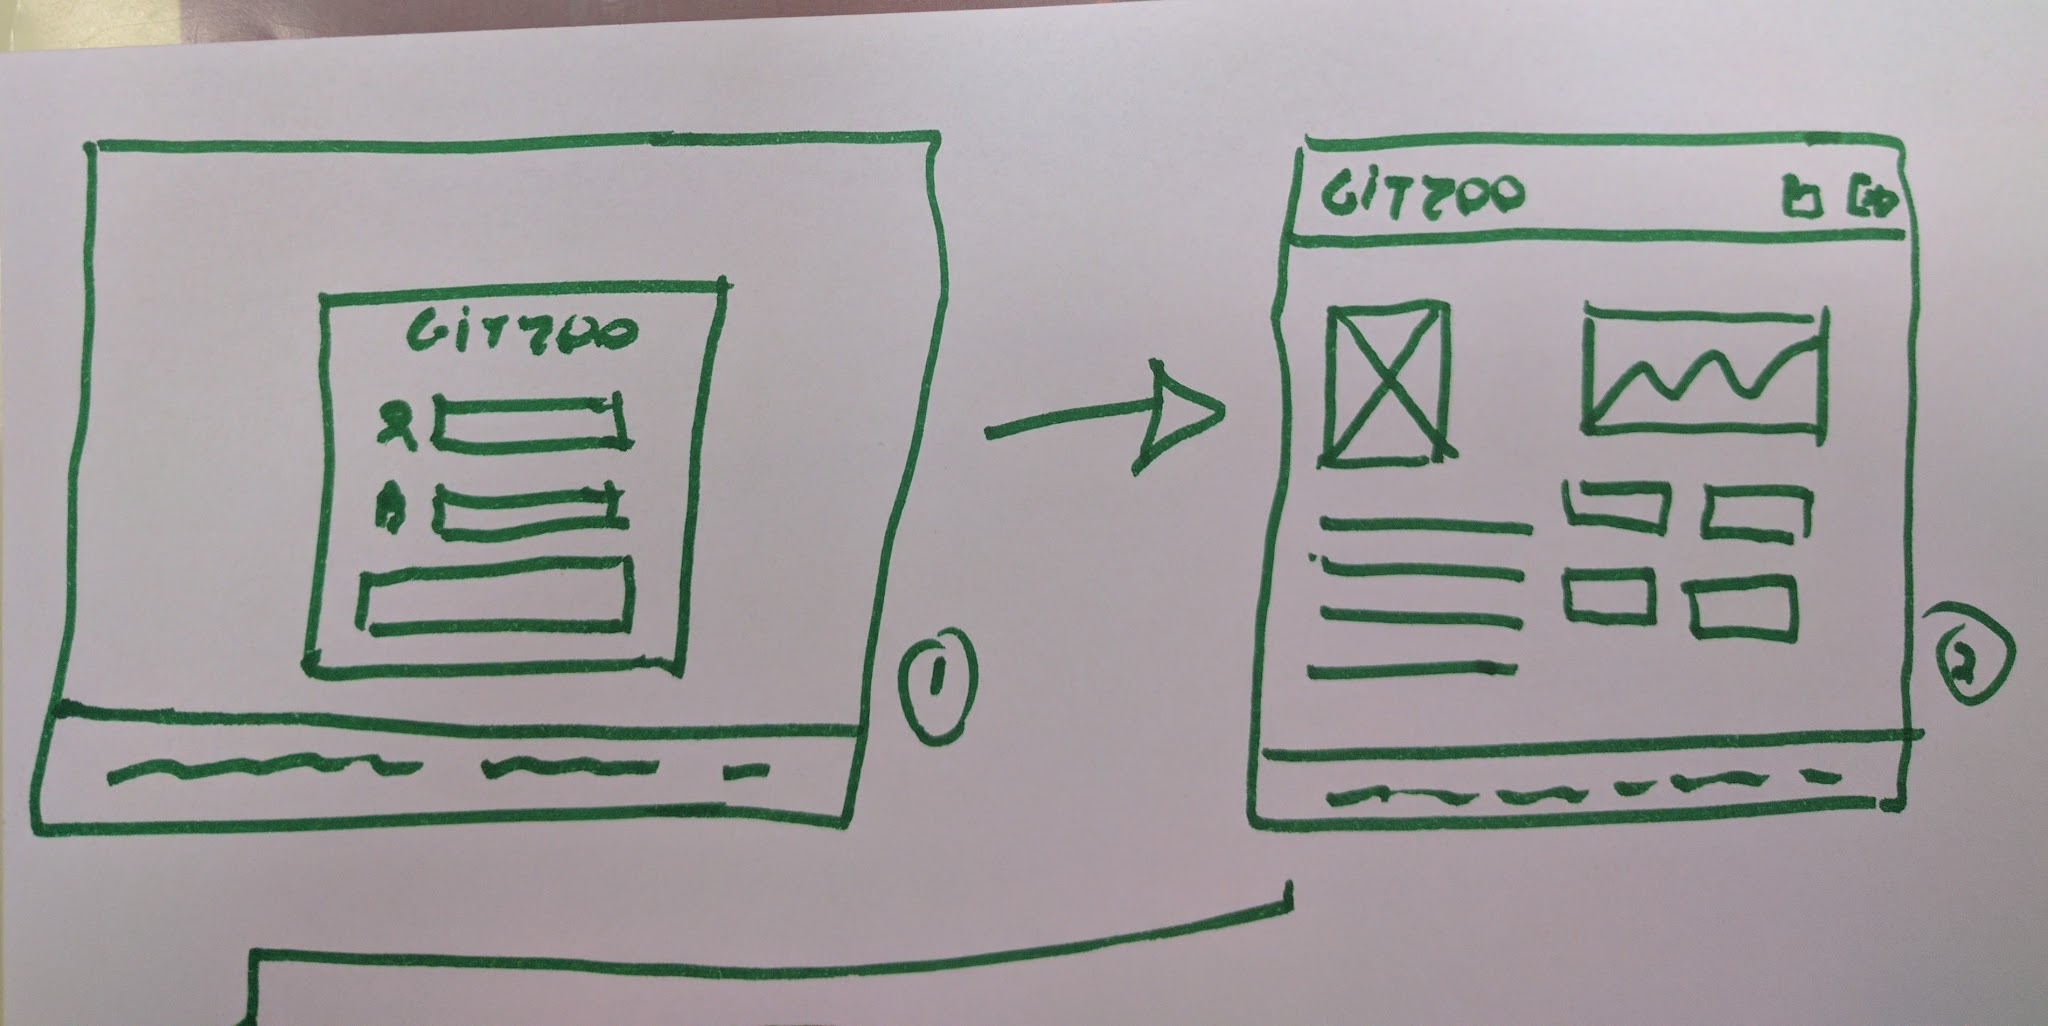 GiTZOO
1
GiTZOO
2